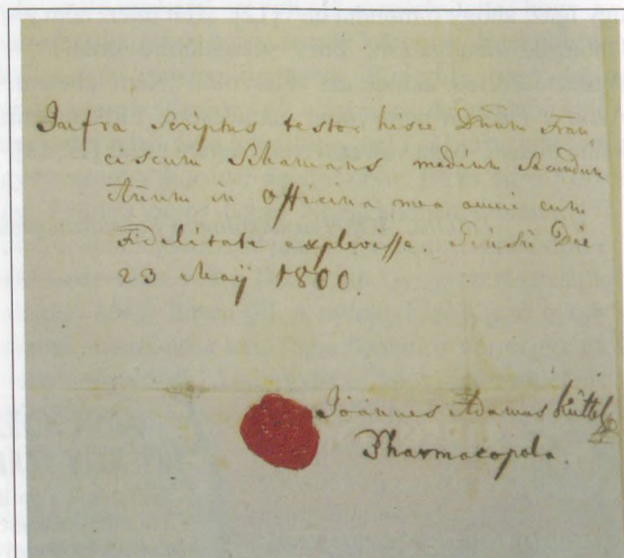 Infra Scriptus testor hisce Dnum Fran
ciscum Schamans medium Secundum
Annum in Officina mea omni cum
Fidelitate explevisse. Die
23 Maÿ 1800.
Joannes Adamus Küttel
Pharmacopola.